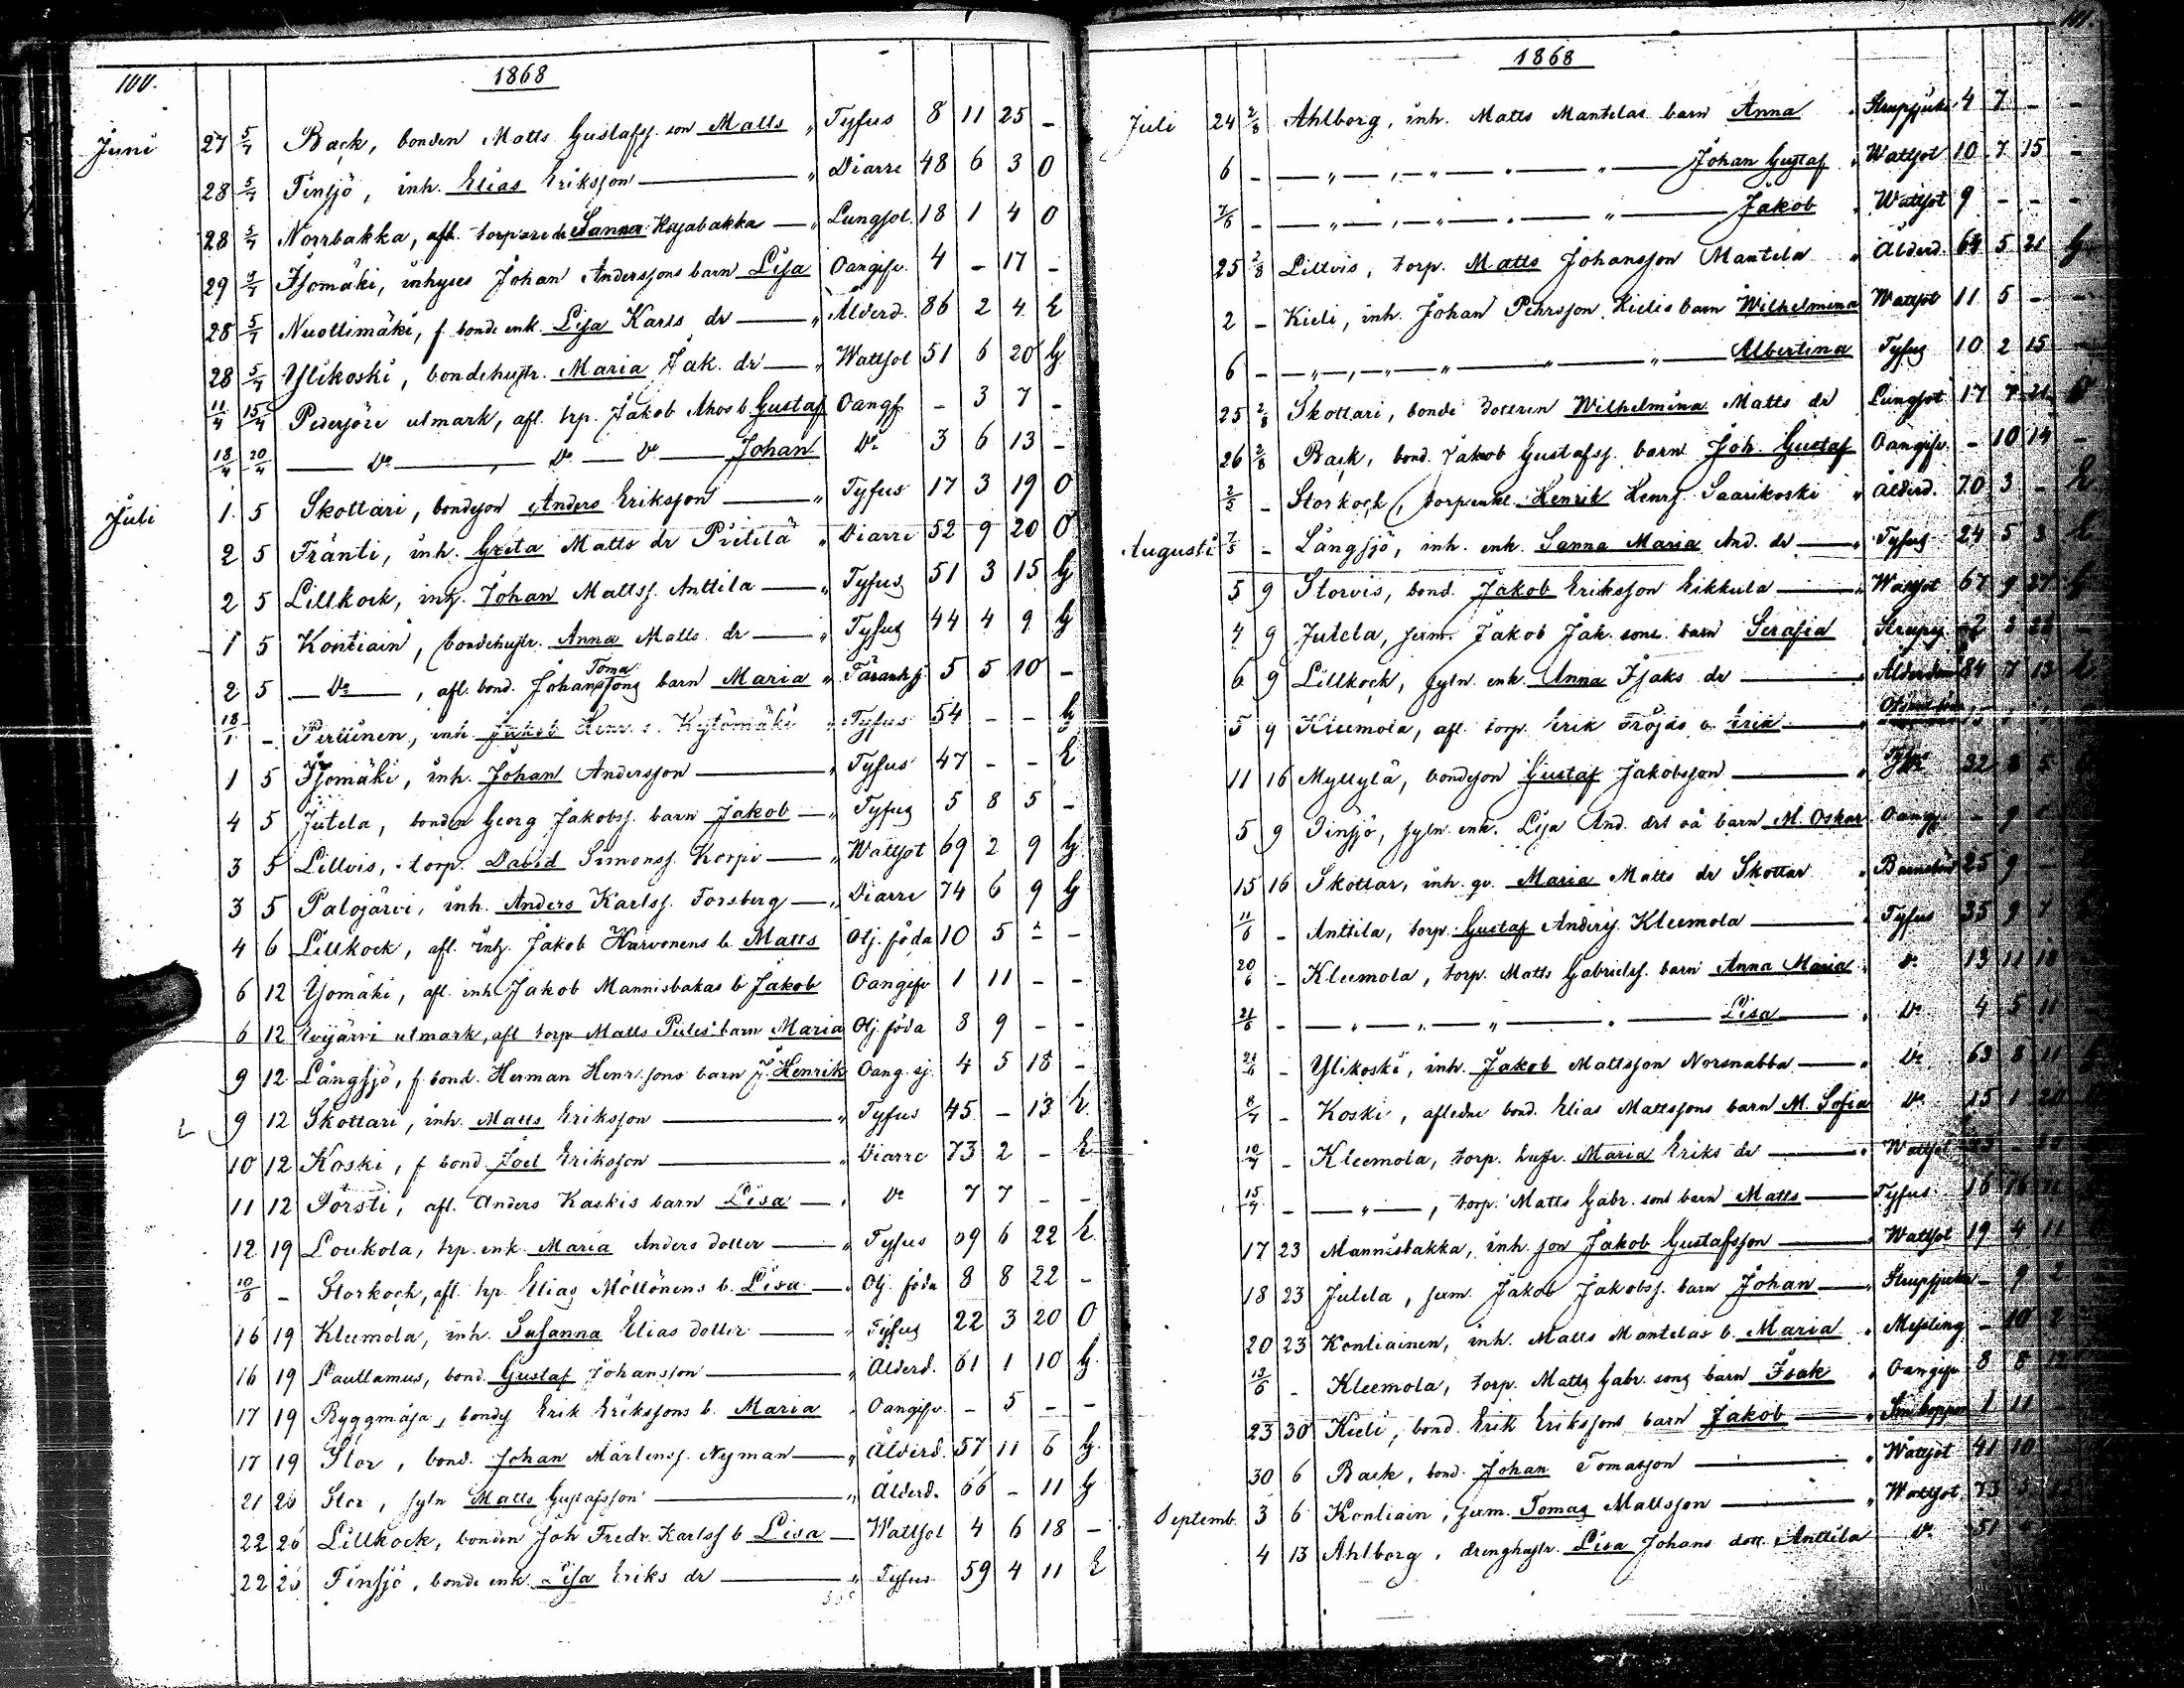 100.
1868
Juni 27 5/7 Back, bonden Matts Gustafss. son Matts " Tyfus 8 11 25 -
28 5/7 Finsjö, inh. Elias Eriksson — " Diarre 48 6 3 0
28 5/7 Norrbakka, afl. torpare dr Sanna Kajabakka — " Lungsot. 18 1 4 0
29 5/7 Isomäki, inhyses Johan Anderssons barn Lisa Oangifv. 4 - 17 -
28 5/7 Nuottimäki, f. bonde enk. Lisa Karls dr — " Ålderd. 86 2 4 E
28 5/7 Ylikoski, bondehustr. Maria Jak. dr — " Wattsot 51 6 20 G
11/4 15/4 Pedersjöre utmark, afl. trp. Jakob Ahos b. Gustaf Oangf - 3 7 -
18/4 20/4 — Do — , Do — Do — Johan Do 3 6 13 -
Juli 1. 5 Skottari, bondeson Anders Eriksson — " Tyfus 17 3 19 0
2 5 Fränti, inh. Greta Matts dr Pietilä " Diarre 52 9 20 0
2 5 Lillkock, inh. Johan Mattss. Anttila — " Tyfus 51 3 15 G
1 5 Kontiain, bondehustr. Anna Matts dr — " Tyfus 44 4 9 G
Toma
2 5 — Do — , afl. bond. Johanssons barn Maria " 5 5 10 -
18/1 - Perttinen, inh. Jakob Henr. s. Kytömäki " Tyfus 54 - - G
1 5 Isomäki, inh. Johan Andersson — " Tyfus 47 - - E
4 5 Jutela, bonden Georg Jakobss. barn Jakob — " Tyfus 5 8 5 -
3 5 Lillvis, torp. David Simonss. Korpi — " Wattsot 69 2 9 G
3 5 Palojärvi, inh. Anders Karlss. Forsberg — " Diarre 74 6 9 G
4 6 Lillkock, afl. inh. Jakob Harvonens b. Matts Otj. föda 10 5 - -
6 12 Isomäki, afl. inh Jakob Mannisbakas b Jakob Oangifv 1 11 - -
6 12 utmark, afl torp Matts barn Maria Otj. föda 8 9 - -
9 12 Långsjö, f. bond. Herman Henr. sons barn J. Henrik Oang. sj. 4 5 18 -
9 12 Skottari, inh. Matts Eriksson — " Tyfus 45 - 13 E
10 12 Koski, f bond Joel Eriksson — " Diarre 73 2 - E
11 12 Törsti, afl. Anders Kaskis barn Lisa — " Do 7 7 - -
12 19 Loukola, trp. enk Maria Anders dotter — " Tyfus 69 6 22 E
10/6 - Storkock, afl. trp. Elias Möttönens b. Lisa — Otj. föda 8 8 22 -
16 19 Kleemola, inh. Susanna Elias dotter — " Tyfus 22 3 20 0
16 19 Pauttamus, bond. Gustaf Johansson — " Ålderd. 61 1 10 G.
17 19 Byggmäsa, bondes. Erik Erikssons b. Maria " Oangifv. - 5 - -
17 19 Stor, bond. Johan Mårtenss. Nyman — " Ålderd. 57 11 6 G.
21 26 Stor, syln Matts Gustafsson — " Ålderd. 66 - 11 G
22 26 Lillkock, bonden Joh Fredr. Karlss b Lisa — Wattsot 4 6 18 -
22 26 Finsjö, bonde enk. Lisa Eriks dr — " Tyfus 59 4 11 E
101.
1868
Juli 24 2/8 Ahlborg, inh. Matts Mantelas barn Anna " Strupsjuka 4 7 - -
6 - — " — Johan Gustaf " Wattsot 10 7 15 -
7/6 - — " — Jakob " Wattsot 9 - - -
25 2/8 Lillvis, torp. Matts Johansson Mantela " Ålderd. 64 5 21 G
2 - Kieli, inh. Johan Pehrsson Kielis barn Wilhelmina Wattsot 11 5 - -
6 - — " — Albertina Tyfus 10 2 15 -
25 2/8 Skottari, bonde dottren Wilhelmina Matts dr Lungsot 17 7 21
26 2/8 Back, bond. Jakob Gustafss. barn Joh. Gustaf Oangifv. - 10 14 -
2/5 - Storkock, torpenkl. Henrik Henrs. Saarikoski " Ålderd. 70 3 - E
Augusti 7/5 - Långsjö, inh. enk. Sanna Maria And. dr — " Tyfus 24 5 3 E
5 9 Storvis, bond. Jakob Eriksson Eikkula — " Wattsot 67 9 27 G
4 9 Jutela, Jakob Jak. sons barn Serafia Strupsj. 2 3
6 9 Lillkock, syln. enk. Anna Isaks dr — Ålderdom 84 7 13 E
5 9 Kleemola, afl. torp. Erik Fröjds b. Erik
11 16 Myllylä, bondeson Gustaf Jakobsson — 32 5
5 9 Finsjö, syln. enk. Lisa And. drs oä barn M. Oskar Oangf. - 9
15 16 Skottar, inh. qv. Maria Matts dr Skottar " Barnsbörd 25 9 -
11/6 - Anttila, torp. Gustaf Anderss. Kleemola — Tyfus 35 9 7
20/6 - Kleemola, torp. Matts Gabrielss. barn Anna Maria " Do 13 11 18
21/6 - — " — Lisa — " Do 4 5 11
- Ylikoski, inh. Jakob Mattsson Norsnabba — " Do 63 8 11
8/7 - Koski, afledne bond. Elias Mattssons barn M. Sofia Do 15 1 20
10/7 - Kleemola, torp. hustr. Maria Eriks dr — " Wattsot
15/7 - — " — , torp. Matts Gabr. sons barn Matts — Tyfus 16
17 23 Mannisbakka, inh. son Jakob Gustafsson — " Wattsot 19 4 11
18 23 Jutela, Jakob Jakobss. barn Johan — " Strupsjuka - 9 2
20 23 Kontiainen, inh. Matts Mantelas b. Maria " Mässling - 10 2
13/6 - Kleemola, torp. Matts Gabr. sons barn Isak " Oangifv 8 8 12
23 30 Kieli, bond. Erik Erikssons barn Jakob — " Smkoppor 1 11
30 6 Back, bond. Johan Tomasson — " Wattsot 41 10
Septemb. 3 6 Kontiain, Tomas Mattsson — " Wattsot 73 5
4 13 Ahlborg, drenghustr. Lisa Johans dott. Anttila Do 51